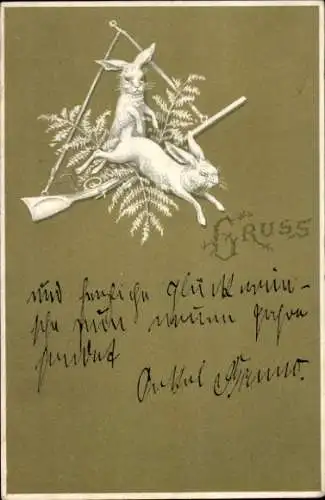 GRUSS
und herzliche Glückwün-
sche zum neuen Jahre
sendet
Onkel Bruno.